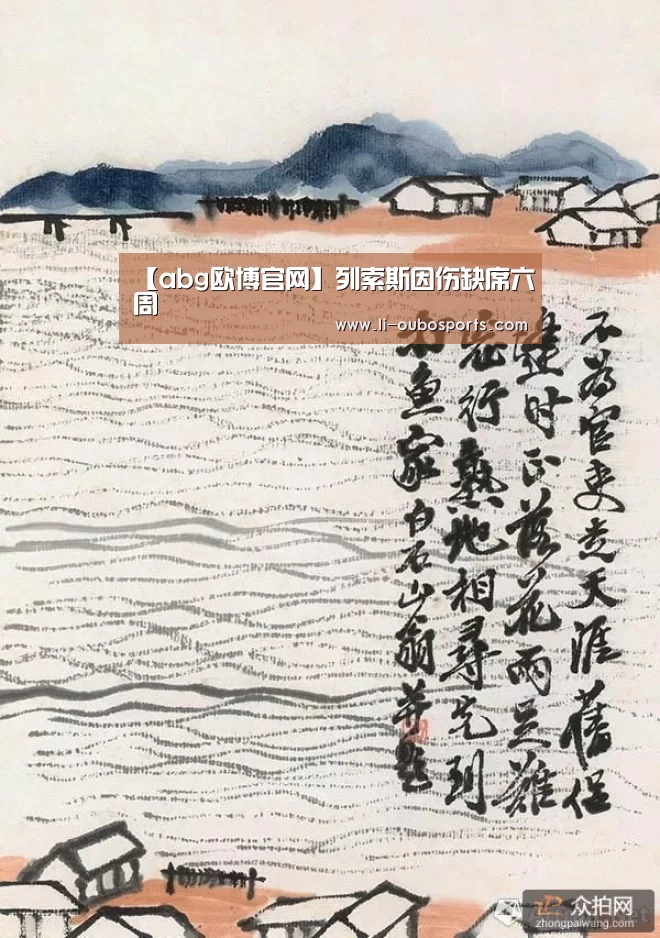 【abg欧博官网】列索斯因伤缺席六
周
www.li-oubosports.com
不為官吏走天涯舊侶
逢时正落花兩足難
忘行熟地相尋先到
魚家白石山翁並題
众拍网
zhongpaiwang.com